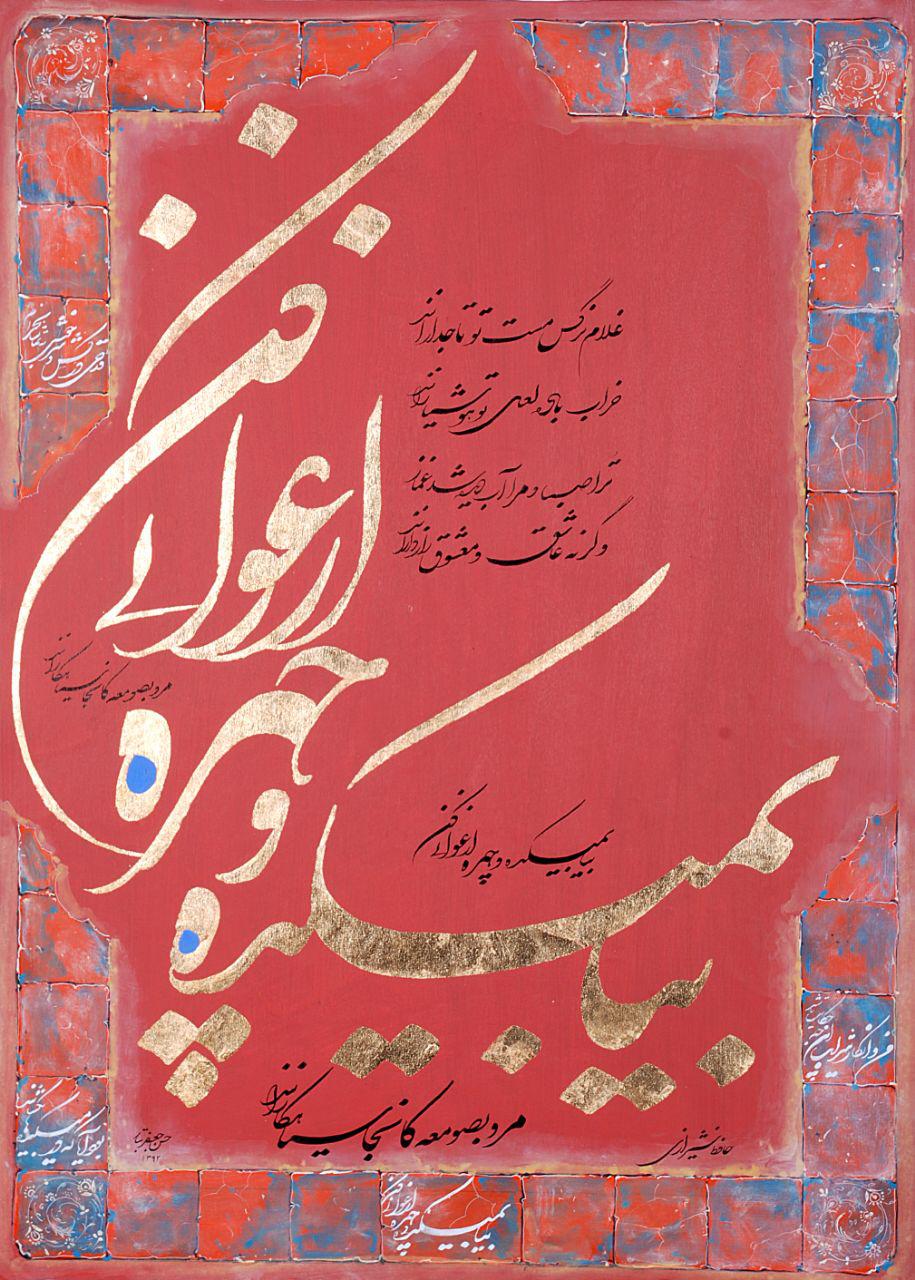 غلام نرگس مست تو تاجدارانند
خراب باده لعل تو هوشیارانند
ترا صبا و مرا آب دیده شد غماز
وگرنه عاشق و معشوق رازدارانند
بیا بمیکده و چهره ارغوانی کن
مرو بصومعه کانجا سیاهکارانند
بیا بمیکده و چهره ارغوانی کن
مرو بصومعه کانجا سیاهکارانند
حافظ شیرازی
حسن
۱۳۹۲
بیا بمیکده و چهره ارغوانی کن